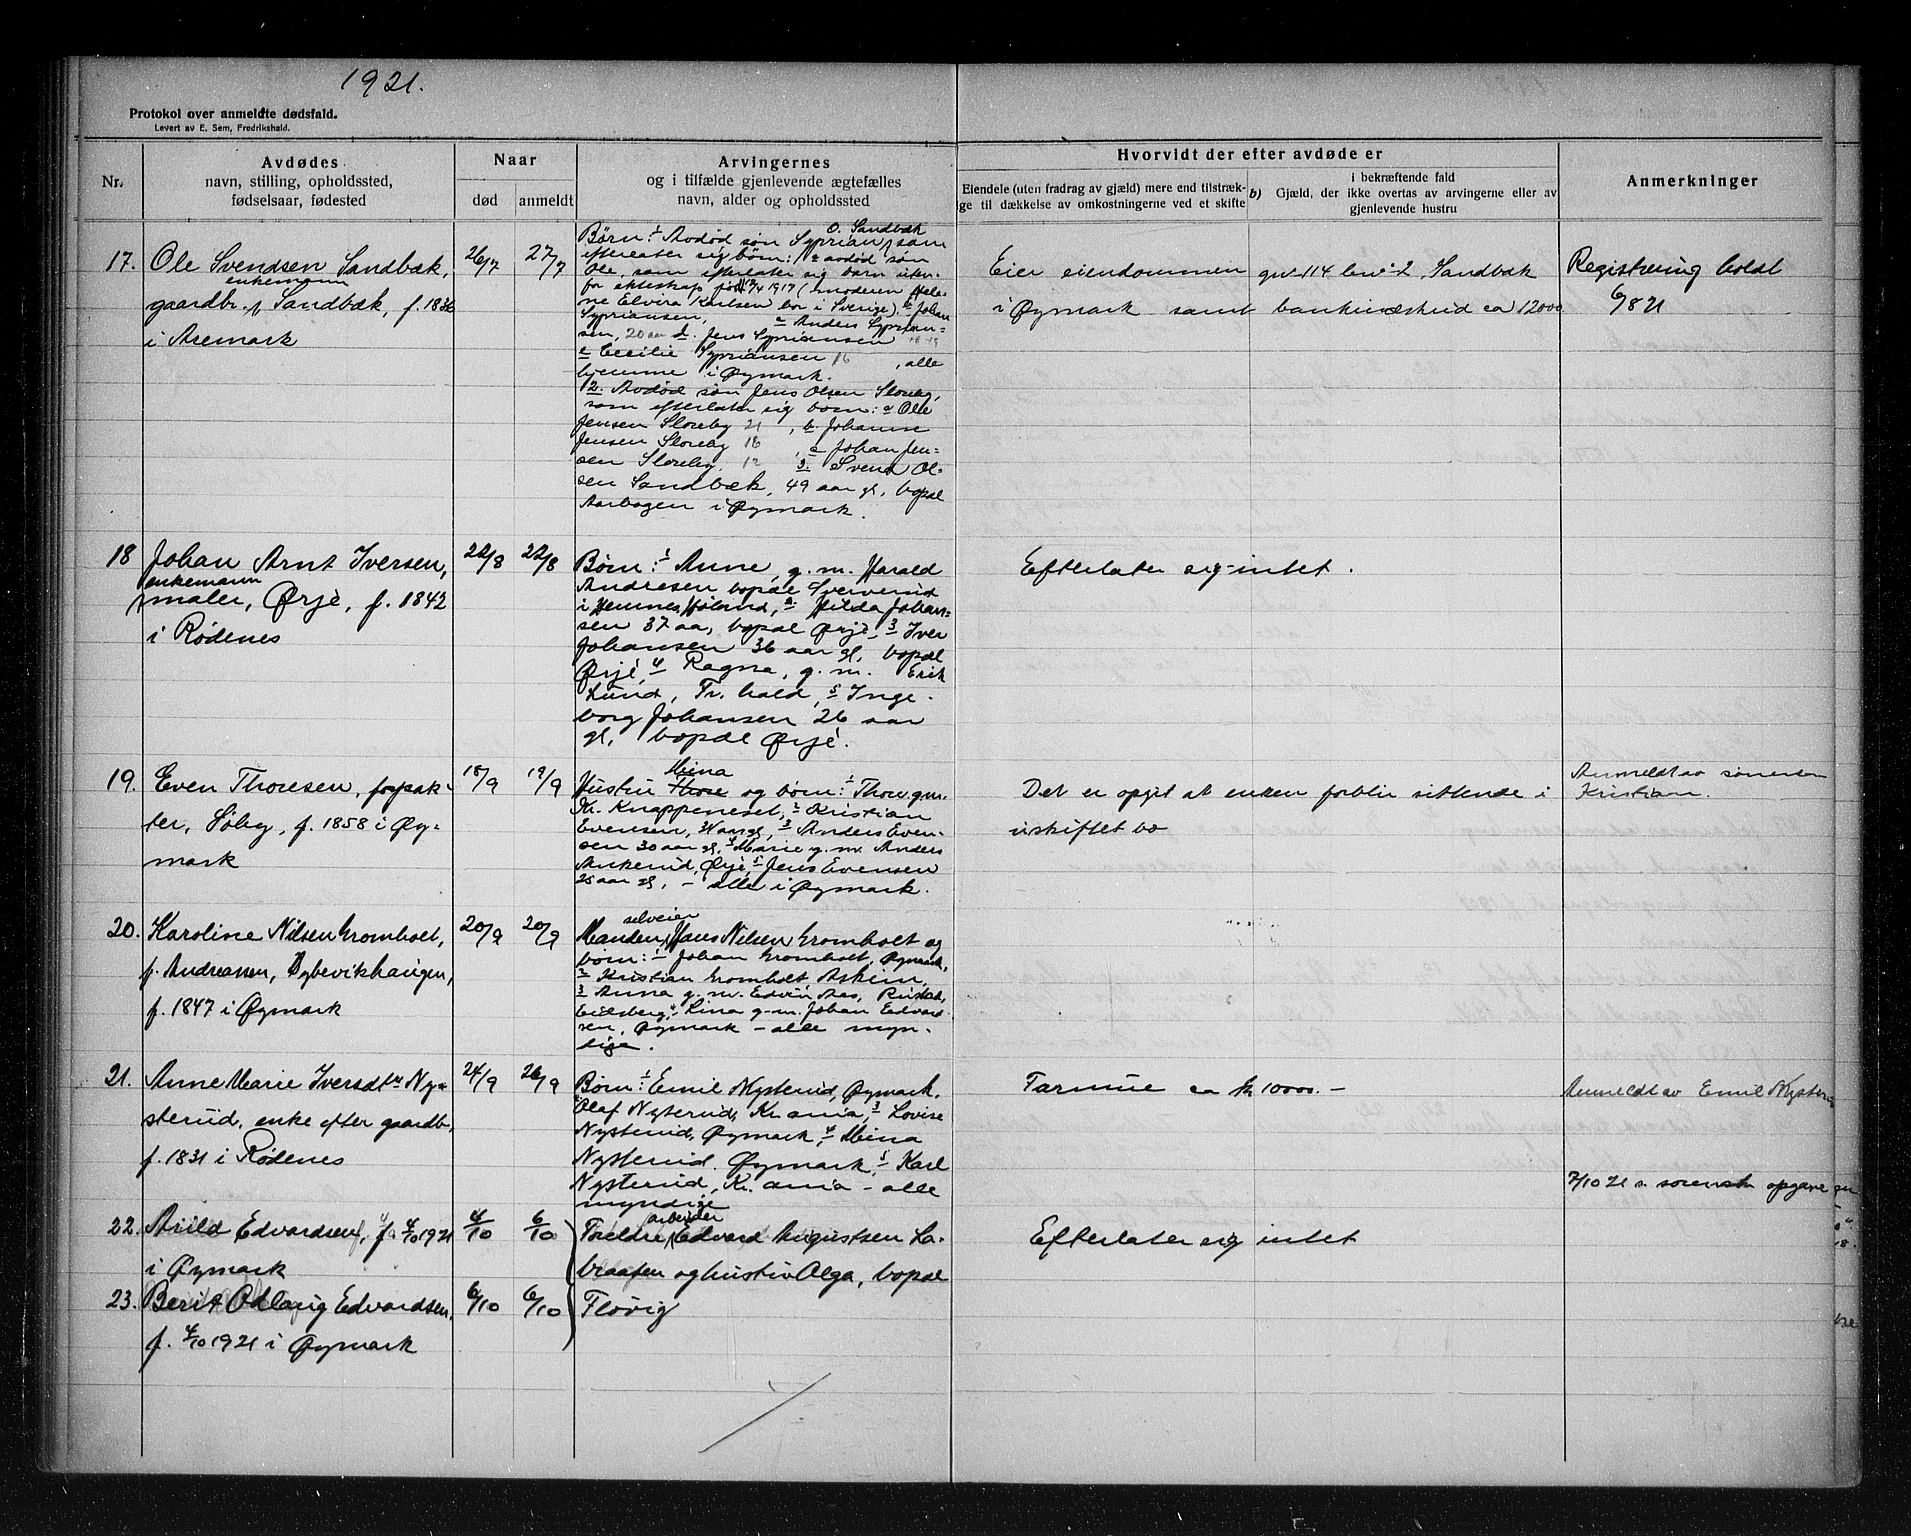 1921.
Protokol over anmeldte dødsfald.
Levert av E. Sem, Fredrikshald.
Nr.
Avdødes
navn, stilling, opholdssted,
fødselsaar, fødested
Naar
død
anmeldt
Arvingernes
og i tilfælde gjenlevende ægtefælles
navn, alder og opholdssted
Hvorvidt der efter avdøde er
Eiendele (uten fradrag av gjæld) mere end tilstræk-
ge til dækkelse av omkostningerne ved et skifte
i bekræftende fald
b) Gjæld, der ikke overtas av arvingerne eller av
gjenlevende hustru
Anmerkninger
17. Ole Svendsen Sandbæk,
enkemann
gaardbr. Sandbæk, f. 1836
i Aremark
26/7
27/7
O. Sandbæk
Børn: 1 Avdød søn Syprian, som
efterlater sig børn: a avdød søn
Ole, som efterlater sig barn uten-
for ekteskap født /4 1917 (moderen Hele-
ne Elvira Karlsen bor i Sverige). b Johan
Sypriansen, c Anders Syprian-
sen, 20 aar d. Jens Sypriansen
e Cecilie Sypriansen 16, alle
hjemme i Øymark.
2. Avdød søn Jens Olsen Sloreby,
som efterlater sig børn: a Ole
Jensen Sloreby 21, b. Johanne
Jensen Sloreby 16, c Johan Jen-
sen Sloreby, 12 3. Svend Ol-
sen Sandbæk, 49 aar gl, bopæl
Aarbogen i Øymark.
Eier eiendommen gnr 114 bnr 2 Sandbæk
i Øymark samt bankindskud ca 12000
Registrering holdt
6/8 21
18 Johan Arnt Iversen,
enkemann
maler, Ørje, f. 1842
i Rødenes
22/8
22/8
Børn: 1 Anne, g. m. Harald
Andresen bopæl Sververud
i Hemnes, Høland, 2 Hilda Johan-
sen 37 aa, bopæl Ørje, 3 Iver
Johansen 36 aar gl, bopæl
Ørje, 4 Ragna, g. m. Erik
Lund, Fr. hald, 5 Inge-
borg Johansen 26 aar
gl, bopæl Ørje.
Efterlater sig intet.
19. Even Thoresen, forpak-
ter, Søby, f. 1858 i Øy-
mark
18/9
19/9
Mina
Hustru Thore og børn: 1 Thora g.m.
Kr. Knappeneset, 2 Kristian
Evensen, aar gl, 3 Anders Even-
sen 30 aar gl, 4 Marie g. m. Anders
Ankerud, Ørje, 5 Jens Evensen
25 aar gl, – alle i Øymark.
Det er opgit at enken forblir sittende i
uskiftet bo
Anmeldt av sønnen
Kristian.
20. Karoline Nilsen Gromholt,
f. Andreassen, Dybevikhaugen,
f. 1847 i Øymark
20/9
20/9
selveier
Manden, Hans Nilsen Gromholt og
børn: 1 Johan Gromholt, Øymark,
2 Kristian Gromholt, Askim,
3 Anna g. m. Edvin Aas, Rustad,
Eidsberg, 4 Lina g. m. Johan Edvard-
sen, Øymark – alle myn-
dige.
21. Anne Marie Iversdtr Ny-
sterud, enke efter gaardbr,
f. 1831 i Rødenes
24/9
26/9
Børn: 1 Emil Nysterud, Øymark,
Olaf Nysterud, Kr.ania, 3 Lovise
Nysterud, Øymark, 4 Mina
Nysterud, Øymark 5 Karl
Nysterud, Kr. ania – alle
myndige
Formue ca kr 10000.–
Anmeldt av Emil Nysterud
7/10 21 s. sorensk opgave
22. Arild Edvardsen, f. 4/10 1921
i Øymark
4/10
6/10
arbeider
Foreldre, Edvard Augustsen La-
braaten og hustru Olga, bopæl
Efterlater sig intet
23. Berit Odlaug Edvardsen,
f. 4/10 1921 i Øymark
6/10
6/10
Fløvig